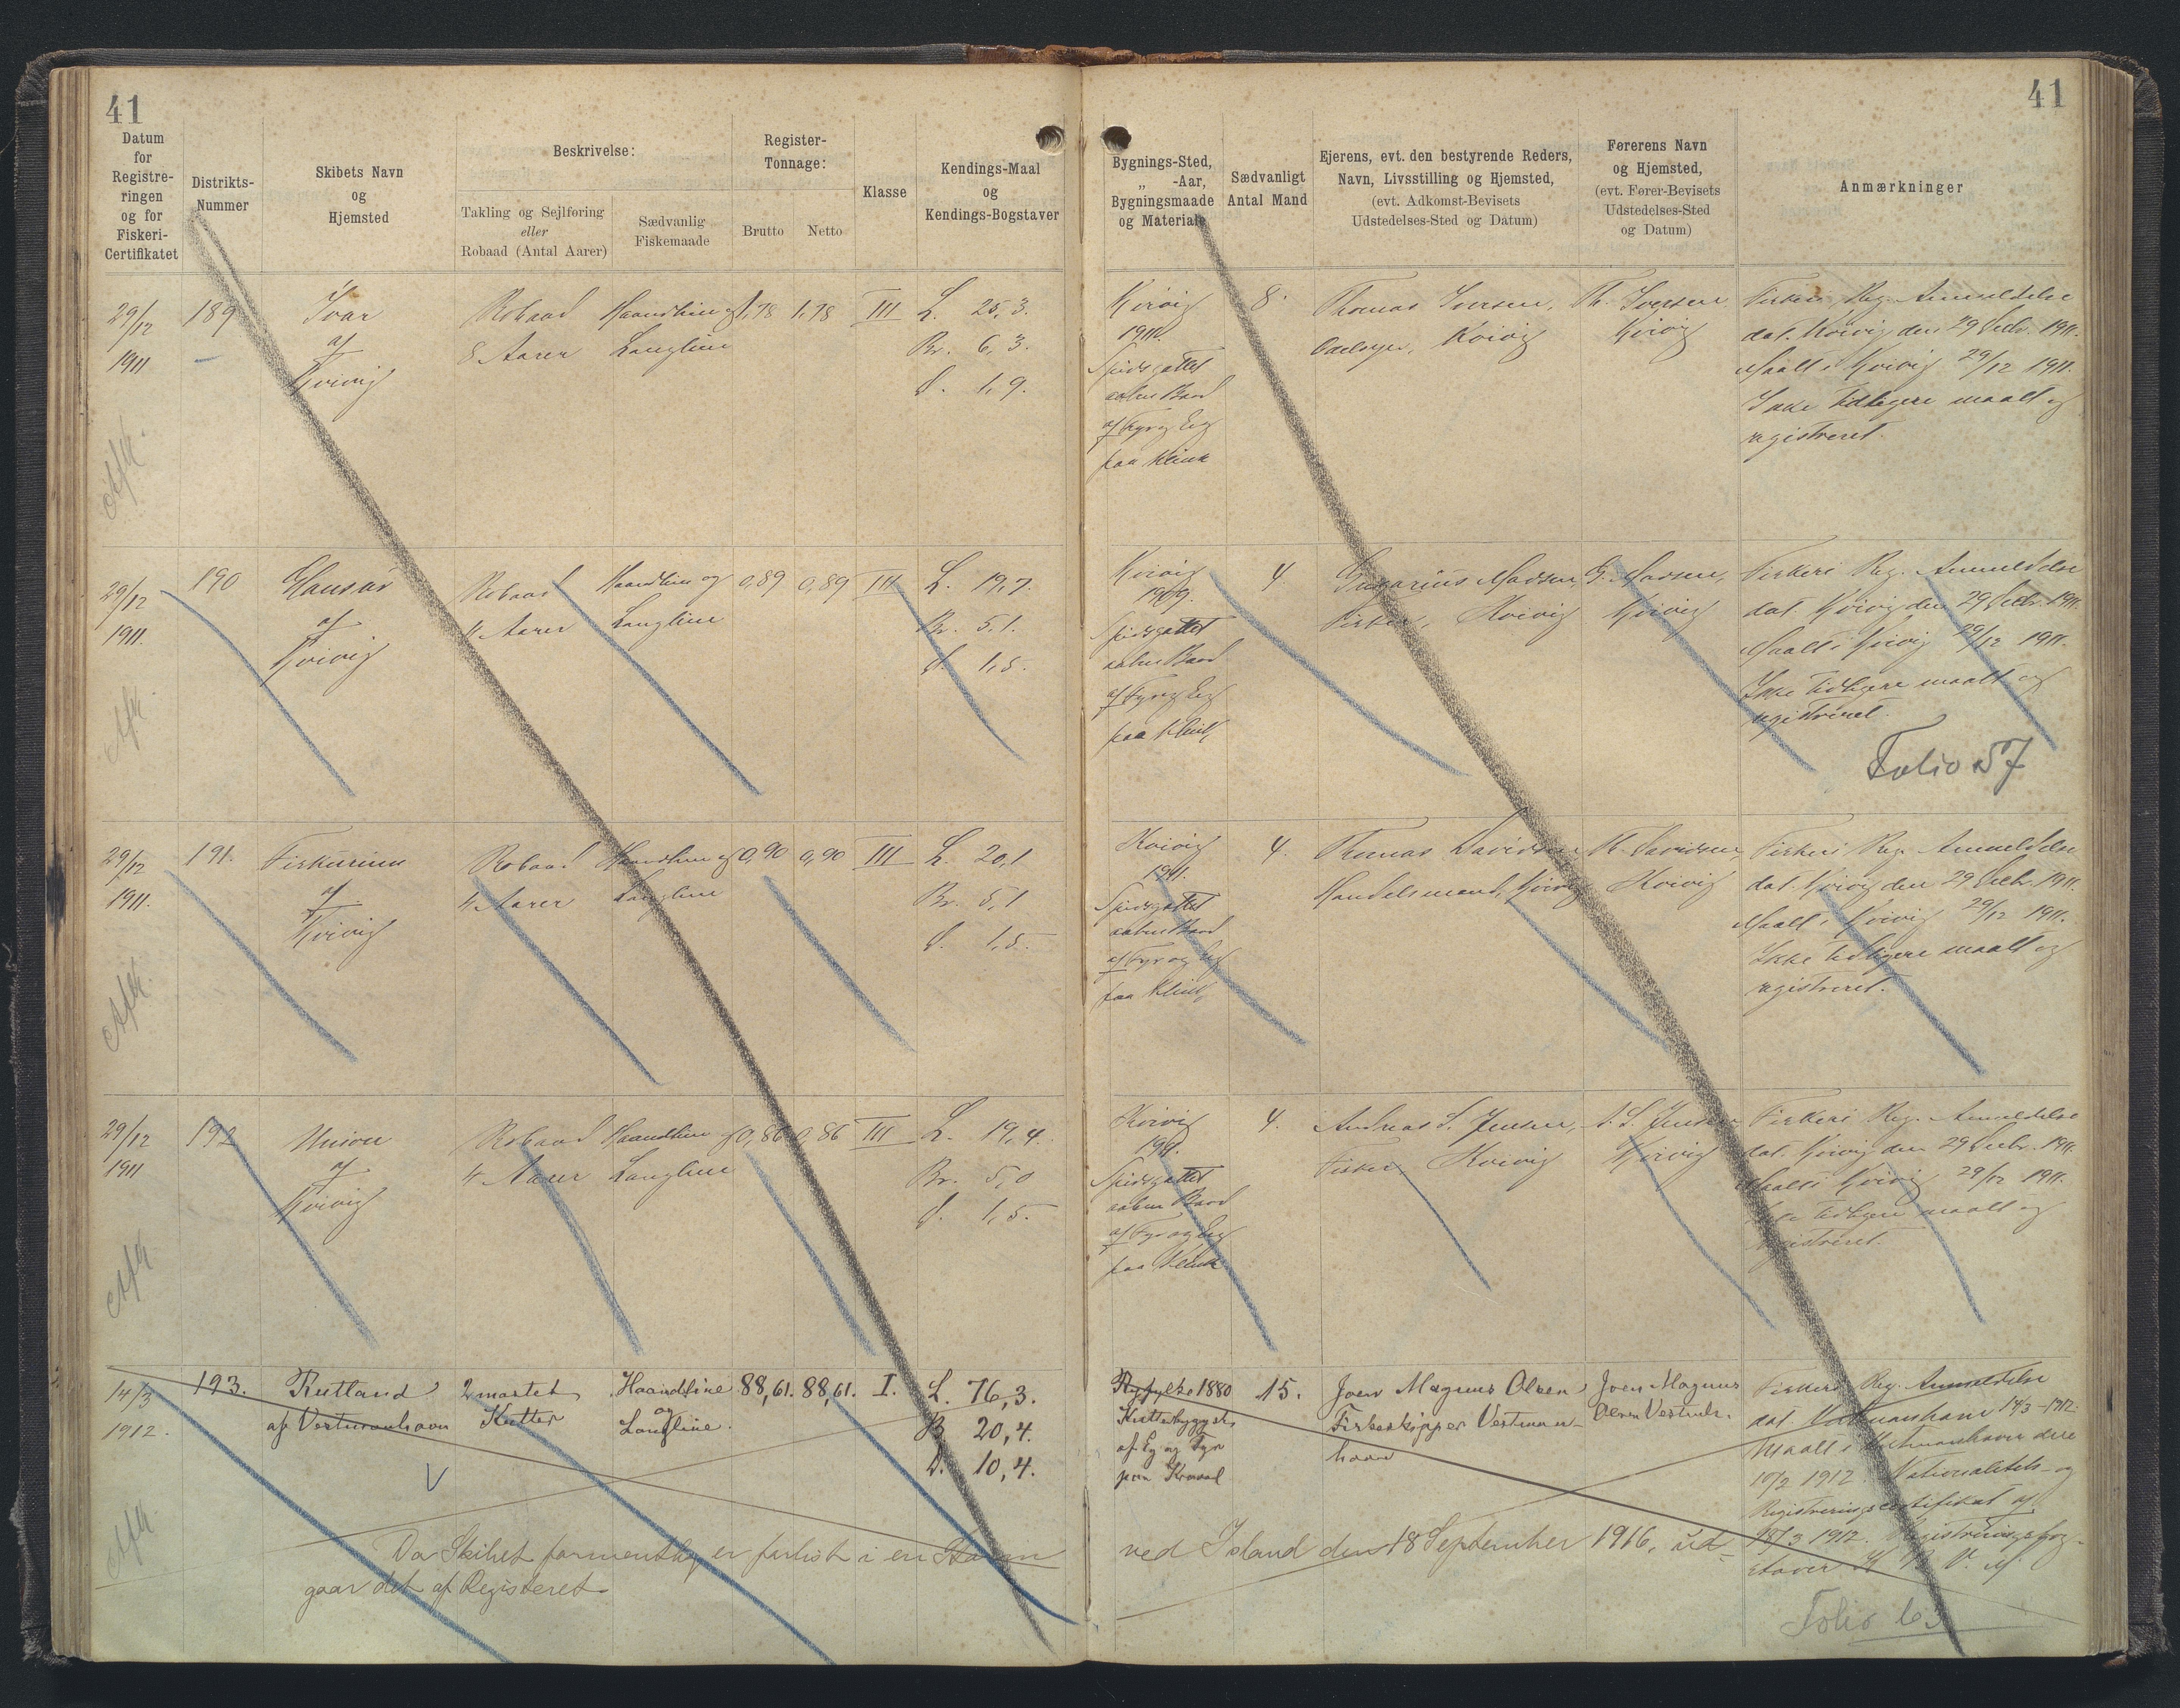 41
41
Datum
for
Registre-
ringen
og for
Fiskeri-
Certifikatet
Distrikts-
Nummer
Skibets Navn
og
Hjemsted
Beskrivelse:
Takling og Sejlføring
eller
Robaad (Antal Aarer)
Sædvanlig
Fiskemaade
Register-
Tonnage:
Brutto
Netto
Klasse
Kendings-Maal
og
Kendings-Bogstaver
Bygnings-Sted,
„ -Aar,
Bygningsmaade
og Materiale
Sædvanligt
Antal Mand
Ejerens, evt. den bestyrende Reders,
Navn, Livsstilling og Hjemsted,
(evt. Adkomst-Bevisets
Udstedelses-Sted og Datum)
Førerens Navn
og Hjemsted,
(evt. Fører-Bevisets
Udstedelses-Sted
og Datum)
Anmærkninger
29/12
1911
189
Ivar
af
Kvivig
Robaad
8 Aarer
Haandline og
Langline
1,78
1,78
III
L. 25,3.
Br. 6,3.
D. 1,9.
Kvivig
1911.
Spidsgattet
aaben Baad
af Fyr og Eg
paa Klink
8.
Thomas Iversen,
Kvivig
Th. Iversen
Kvivig
Fiskeri Reg. Anmeldelse
dat. Kvivig den 29 Decbr. 1911.
Maalt i Kvivig 29/12 1911.
Ikke tidligere maalt og
registreret.
29/12
1911.
190
af
Kvivig
Robaad
4 Aarer
Haandline og
Langline
0,89
0,89
III
L. 19,7.
Br. 5,1.
D. 1,5.
Kvivig
1909.
Spidsgattet
aaben Baad
af Fyr og Eg
paa Klink
4.
Madsen,
Fisker, Kvivig
Madsen,
Kvivig
Fiskeri Reg. Anmeldelse
dat. Kvivig den 29 Decbr. 1911.
Maalt i Kvivig 29/12 1911.
Ikke tidligere maalt og
registreret.
Folio 57
29/12
1911.
191.
af
Kvivig
Robaad
4 Aarer
Haandline og
Langline
0,90
0,90
III
L. 20,1
Br. 5,1
D. 1,5.
Kvivig
1911.
Spidsgattet
aaben Baad
af Fyr og Eg
paa Klink
4.
Thomas Davidsen
Handelsmand, Kvivig
Th. Davidsen,
Kvivig
Fiskeri Reg. Anmeldelse
dat. Kvivig den 29 Decbr. 1911.
Maalt i Kvivig 29/12 1911.
Ikke tidligere maalt og
registreret.
29/12
1911
192
Union
af
Kvivig
Robaad
4 Aarer
Haandline og
Langline
0,86
0,86
III
L. 19,4.
Br. 5,0
D. 1,5.
Kvivig
1911.
Spidsgattet
aaben Baad
af Fyr og Eg
paa Klink
4.
Andreas S. Jensen,
Fisker, Kvivig
A. S. Jensen
Kvivig
Fiskeri Reg. Anmeldelse
dat. Kvivig den 29 Decbr. 1911.
Maalt i Kvivig 29/12 1911.
Ikke tidligere maalt og
registreret.
14/3
1912.
193.
Rutland
af Vestmanhavn
2 mastet
Kutter
Haandline
og
Langline.
88,61.
88,61.
I.
L. 76,3.
B. 20,4.
D. 10,4.
Ryfylke 1880
Kutterbygget,
af Eg og Fyr
paa Kravel
15.
Joen Magnus Olsen
Fiskeskipper Vestman-
havn
Joen Magnus
Olsen Vestmh.
Fiskeri Reg. Anmeldelse
dat. Vestmanhavn 14/3 - 1912.
Maalt i Vestmanhavn den
10/2 1912. Nationalitets- og
Registreringscertifikat af
18/3 1912. Registreringsbog-
staver
Da Skibet formentlig er forlist i en Storm
ved Island den 18 September 1916, ud-
gaar det af Registeret.
Folio 63